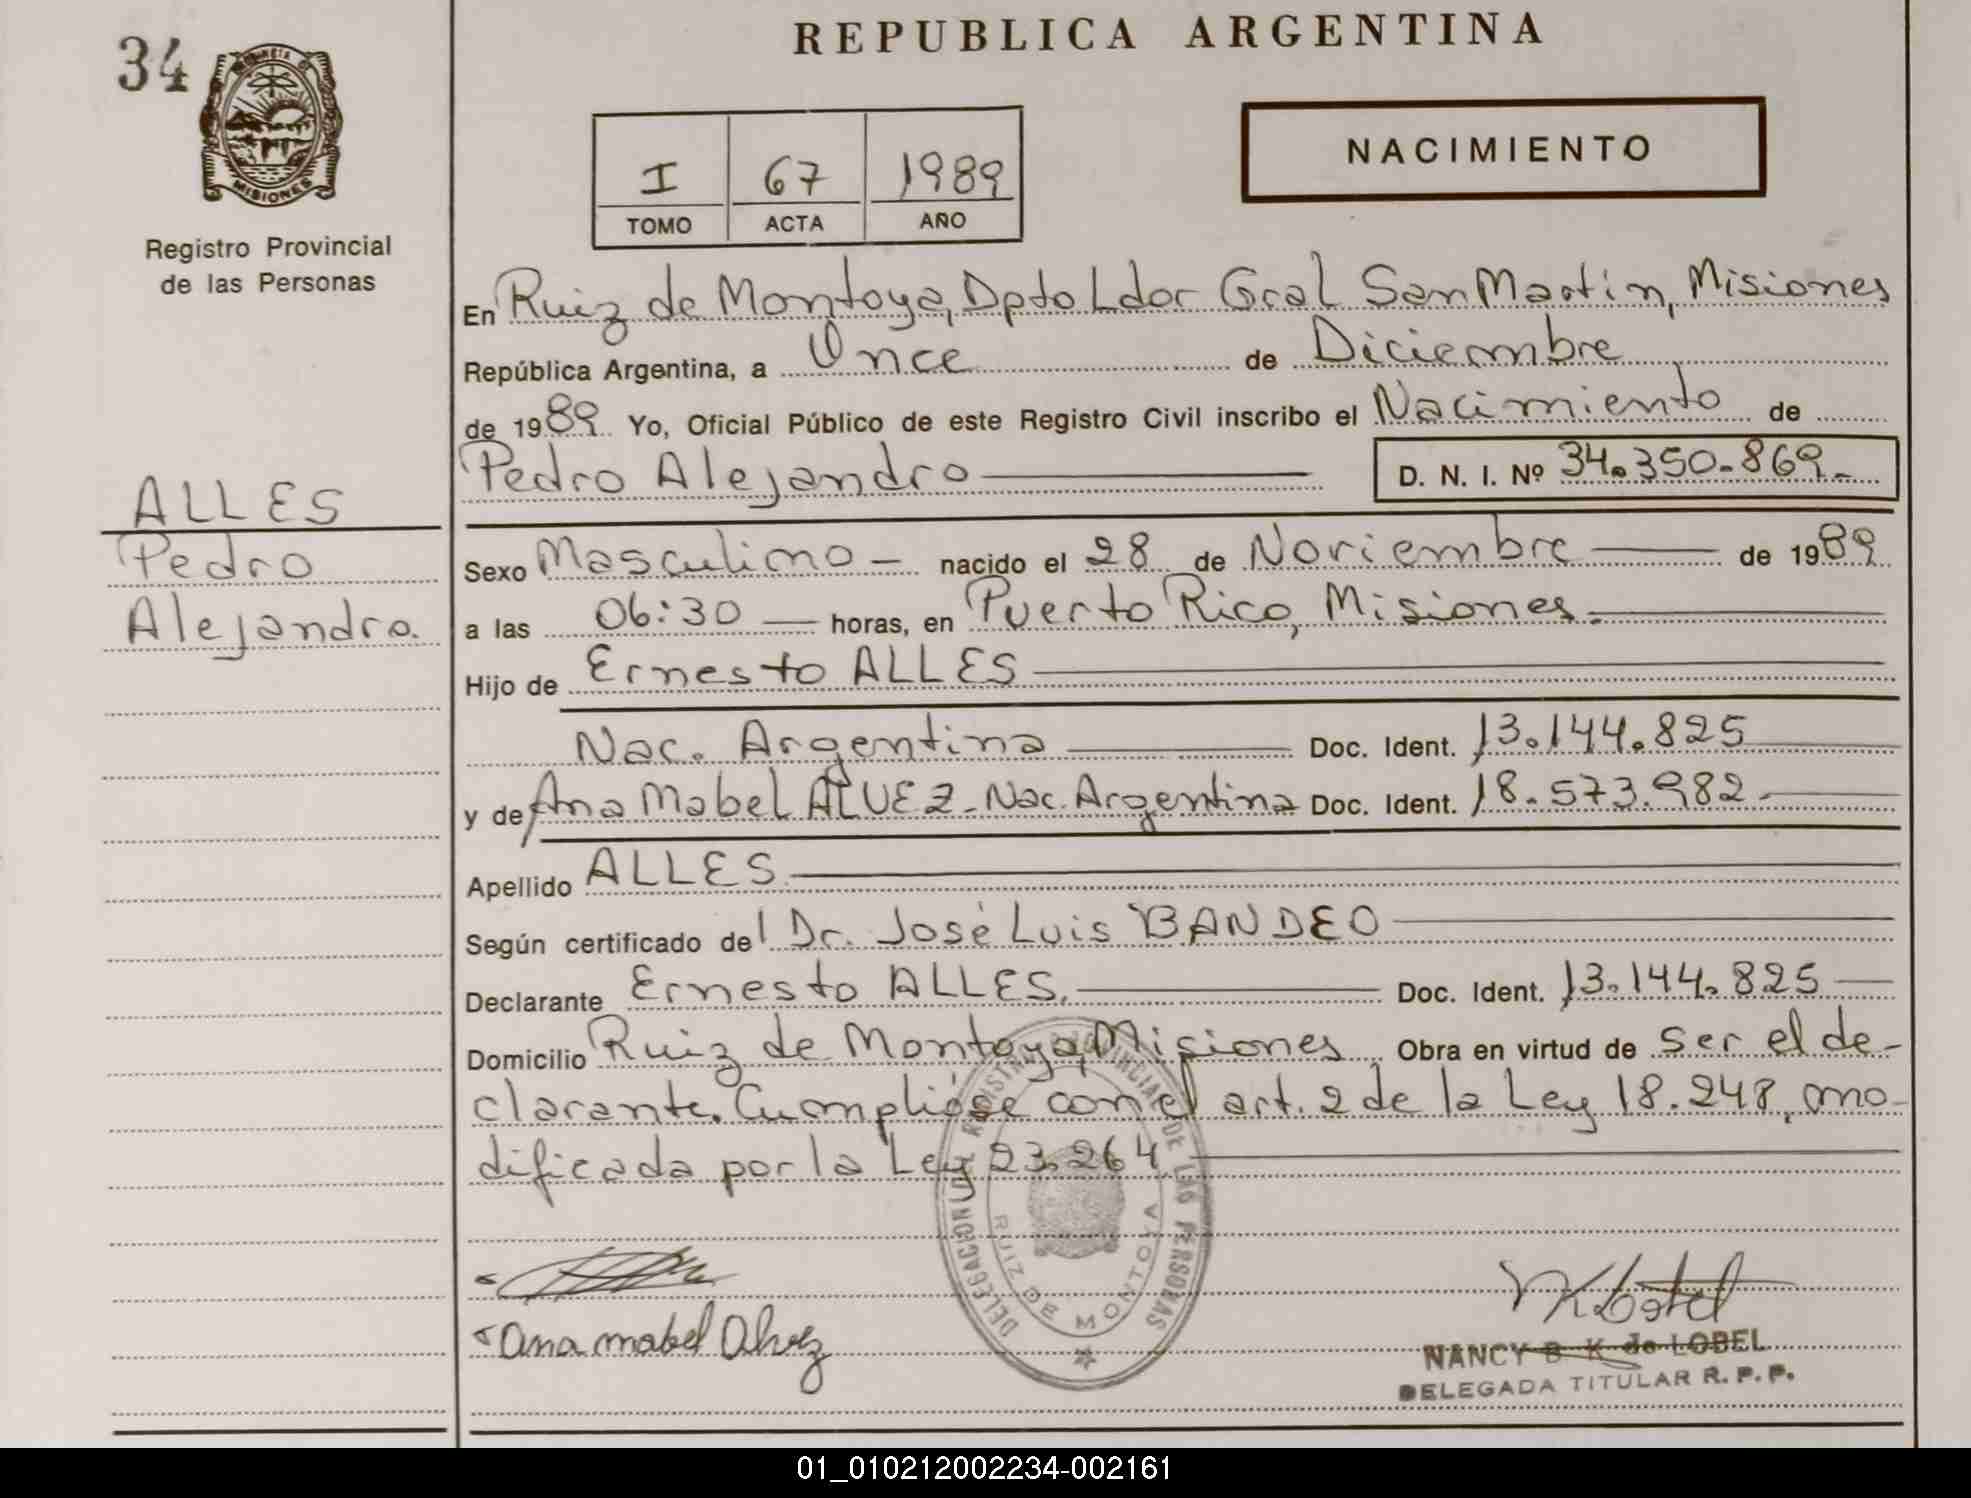 34
REPUBLICA ARGENTINA
MISIONES
Registro Provincial
de las Personas
I 67 1989
TOMO ACTA AÑO
NACIMIENTO
En Ruiz de Montoya, Dpto Ldor Gral San Martin, Misiones
República Argentina, a Once de Diciembre
de 1989 Yo, Oficial Público de este Registro Civil inscribo el Nacimiento de
Pedro Alejandro D. N. I. Nº 34.350.869.-
ALLES
Pedro
Alejandro.
Sexo Masculino - nacido el 28 de Noviembre de 1989
a las 06:30 horas, en Puerto Rico, Misiones.
Hijo de Ernesto ALLES
Nac. Argentina Doc. Ident. 13.144.825
y de Ana Mabel ALVEZ - Nac. Argentina Doc. Ident. 18.573.982
Apellido ALLES
Según certificado del Dr. José Luis BANDEO
Declarante Ernesto ALLES. Doc. Ident. 13.144.825
Domicilio Ruiz de Montoya, Misiones Obra en virtud de ser el de-
clarante. Cumplióse con el art. 2 de la Ley 18.248, mo-
dificada por la Ley 23.264
DELEGACION DEL REGISTRO PROVINCIAL DE LAS PERSONAS
RUIZ DE MONTOYA
Ana mabel Alvez
NANCY B K de LOBEL
DELEGADA TITULAR R. P. P.
01_010212002234-002161